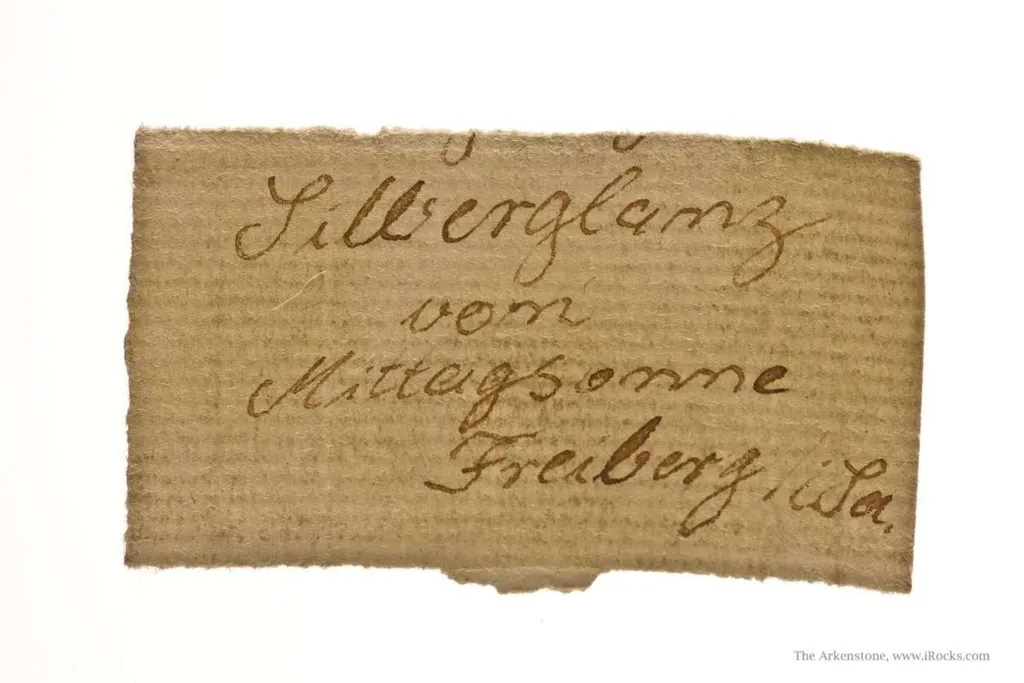 Silberglanz
von
Mittagsonne
Freiberg, i Sa.
The Arkenstone, www.iRocks.com